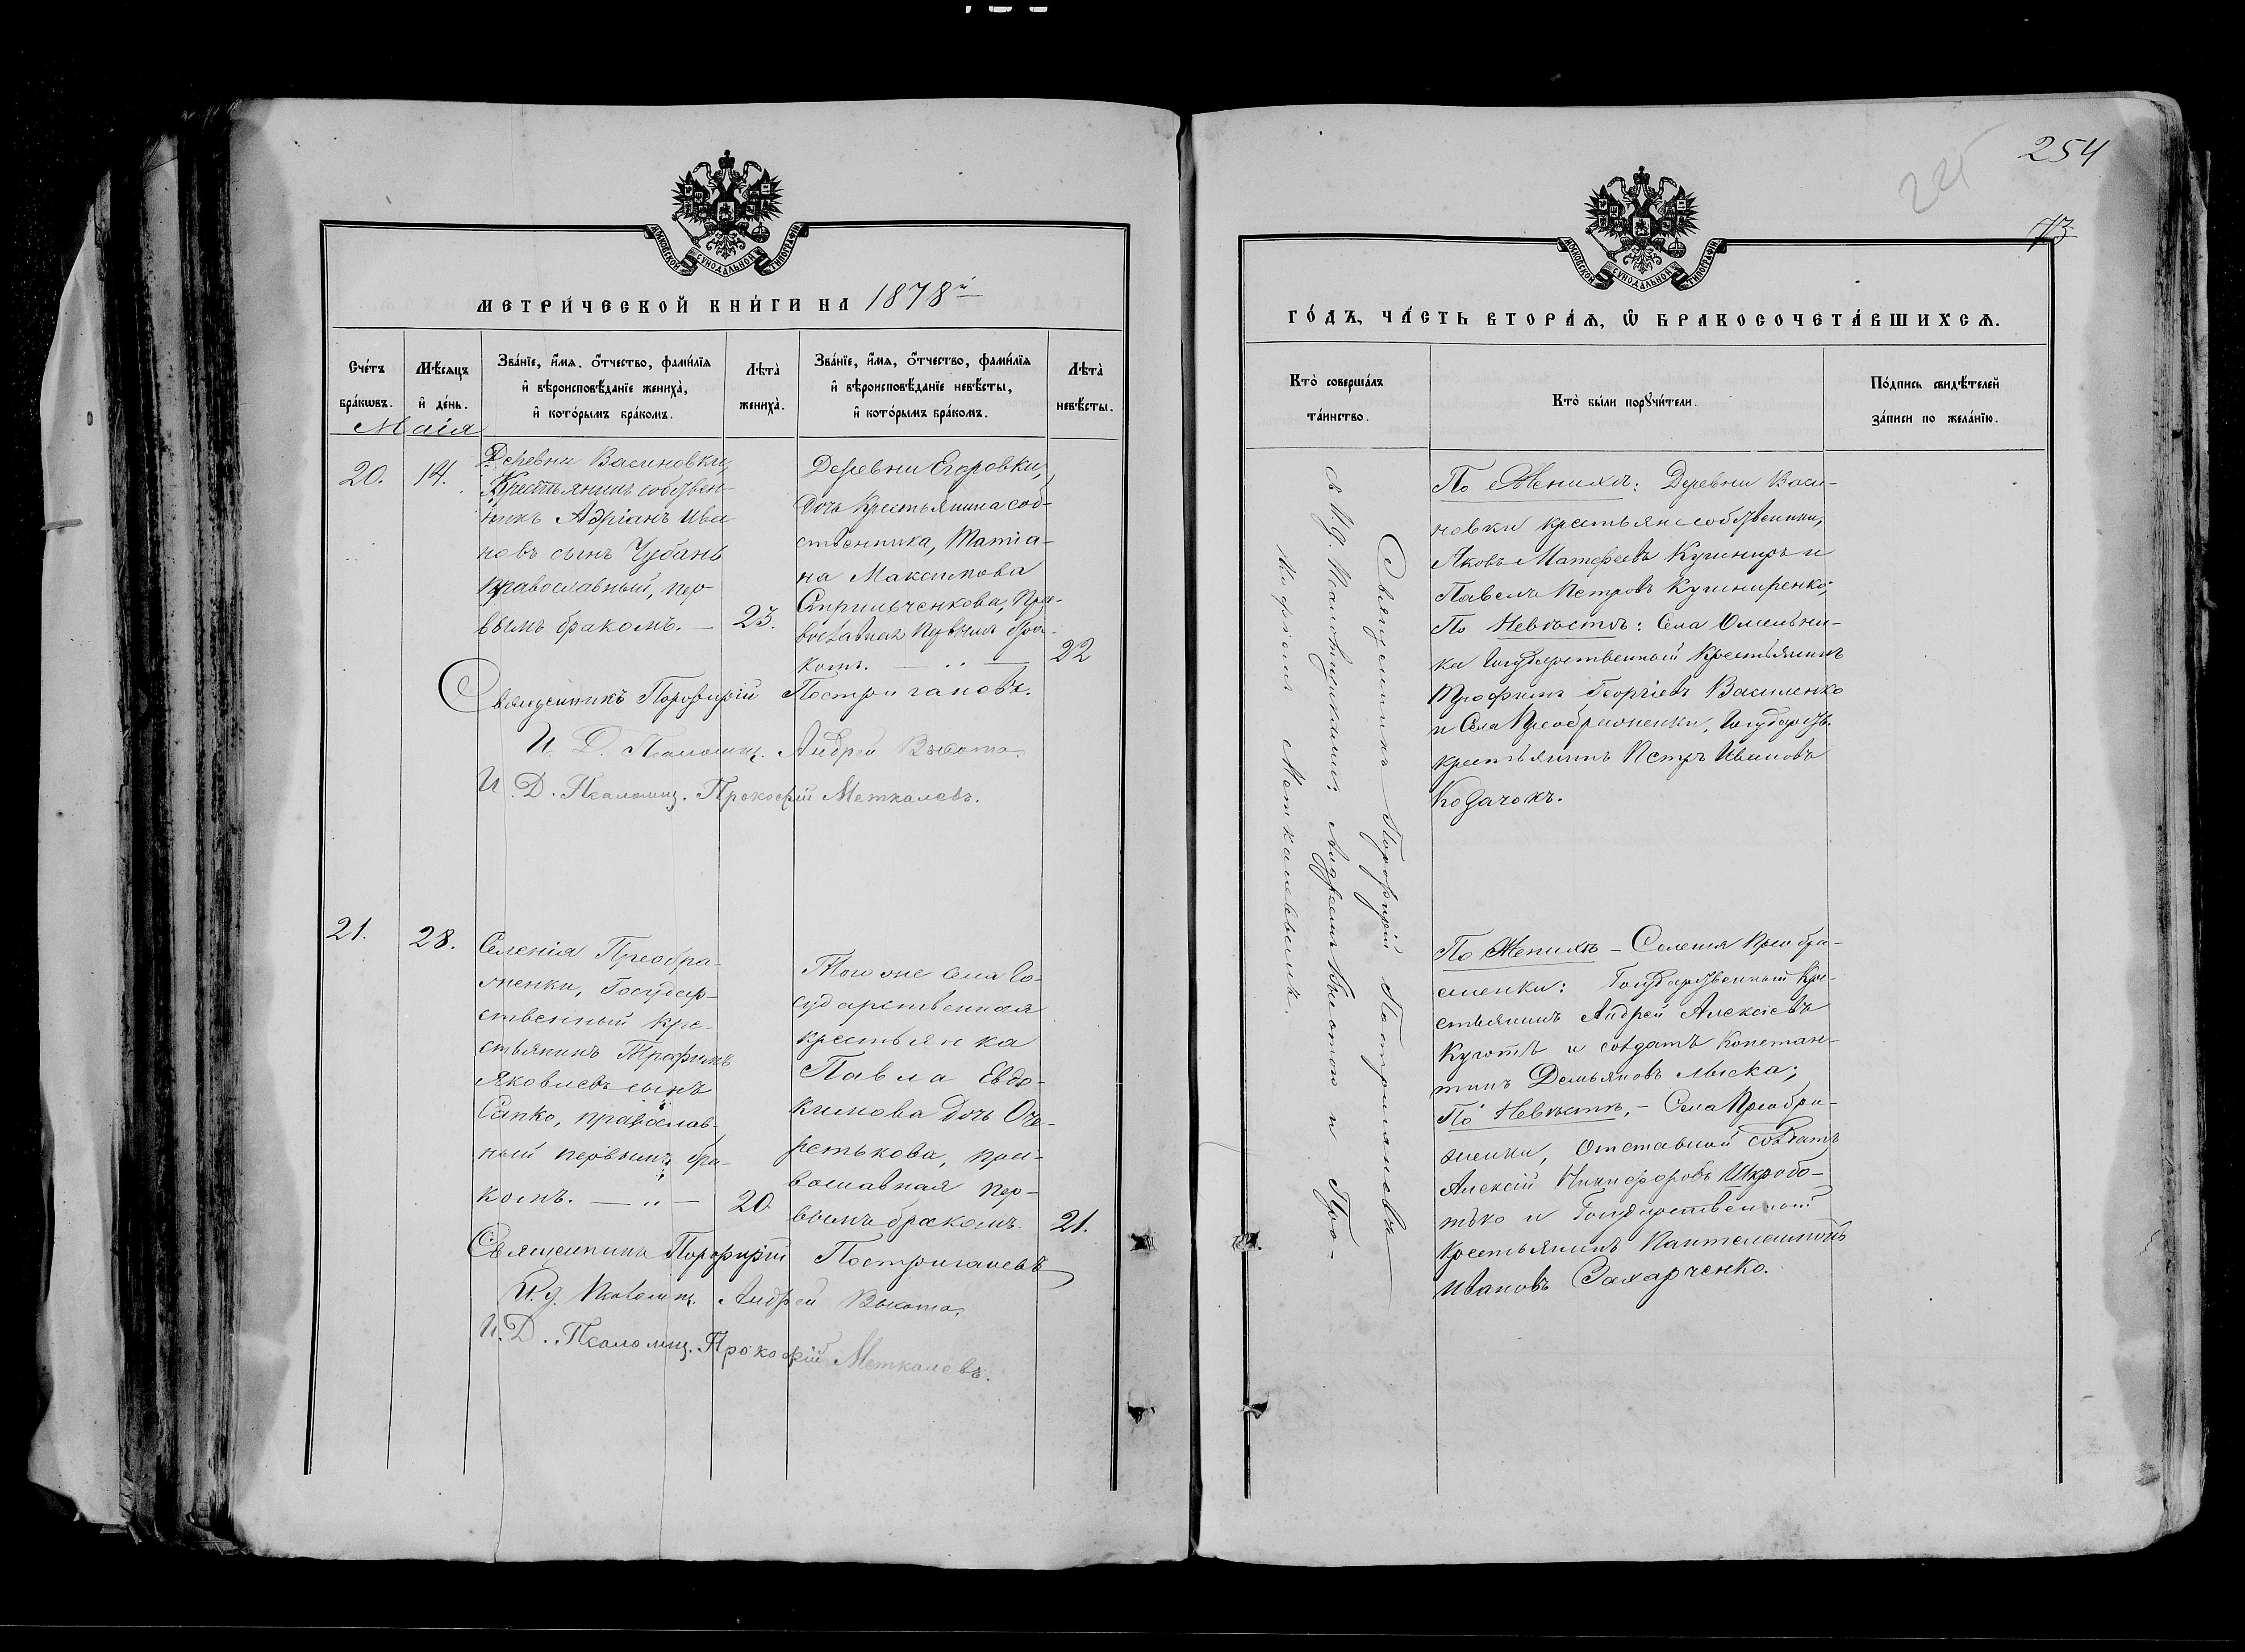 254
73
МОСКОВСКОЙ СУНОДАЛЬНОЙ ТИПОГРАФІИ
МЕТРИ́ЧЕСКОЙ КНИ́ГИ НА 1878й
Сче́тъ бра́кѡвъ.
Мѣ́сяцъ и҆ де́нь.
Зва́нїе, и҆́мя, ѻ҆́тчество, фами́лїя
и҆ вѣроисповѣ́данїе жениха̀,
и҆ кото́рымъ бра́комъ.
Лѣта̀ жениха̀.
Зва́нїе, и҆́мя, ѻ҆́тчество, фами́лїя
и҆ вѣроисповѣ́данїе невѣ́сты,
и҆ кото́рымъ бра́комъ.
Лѣта̀ невѣ́сты.
Маія
20.
14.
Деревни Васиновки,
Крестьянинъ собствен-
никъ Адріанъ Ива
новъ сынъ Чубань
православный, пер-
вымъ бракомъ. —
23.
Деревни Егоровки,
дочь Крестьянина соб-
ственника, Татіа-
на Максимова
Стрильченкова, Пра-
вославная первымъ бра-
комъ. — " —
22
Священникъ Порфирій Постригановъ.
И. Д. Псаломщ. Андрей Высота.
И. Д. Псаломщ. Прокофій Меткалевъ.
21.
28.
Селенія Преобра-
женки, Государ-
ственный кре-
стьянинъ Трофимъ
Яковлевъ сынъ
Сапко, православ-
ный первымъ бра-
комъ. — " —
20
Того же села Го-
сударственная
крестьянка
Павла Евдо-
кимова дочь Оче-
ретькова, пра-
вославная пер-
вымъ бракомъ.
21.
Священникъ Порфирій Постригановъ
И. д. Псаломщ. Андрей Высота.
И. Д. Псаломщ. Прокофій Меткалевъ.
МОСКОВСКОЙ СУНОДАЛЬНОЙ ТИПОГРАФІИ
ГО́ДЪ, ЧА́СТЬ ВТОРА́Ѧ, Ѡ҆ БРАКОСОЧЕТА́ВШИХСѦ.
Кто̀ соверша́лъ
та́инство.
Кто̀ бы́ли порꙋчи́тели.
По́дпись свидѣ́телей
за́писи по жела́нїю.
Священникъ Порфирій Постригановъ
съ И. д. Псаломщиками: Андреемъ Высотою и Про-
кофіемъ Меткалевымъ.
По Женихѣ: Деревни Васи-
новки крестьяне собственики,
Яковъ Матфеевъ Кушниръ и
Павелъ Петровъ Кушниренко;
По Невѣстѣ: Села Омельни-
ка Государственный Крестьянинъ
Трофимъ Георгіевъ Василенко
и Села Преображенки, Государств.
крестьянинъ Петръ Ивановъ
Козачокъ.
По Женихѣ — Селенія Преобра-
женки: Государственный Кре-
стьянинъ Андрей Алексіевъ
и солдатъ Констан-
тинъ Демьяновъ Лыска;
По Невѣстѣ, — Села Преобра-
женки, Отставной солдатъ
Алексій Никифоровъ Шкробо-
тько и Государственный
крестьянинъ Пантелеимонъ
Ивановъ Захарченко.